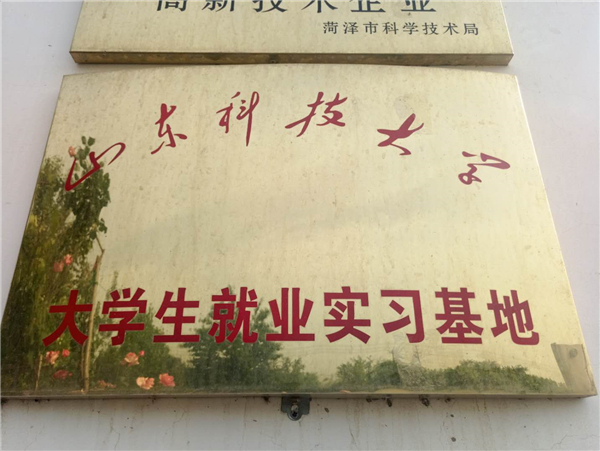 高新技术企业
菏泽市科学技术局
山东科技大学
大学生就业实习基地